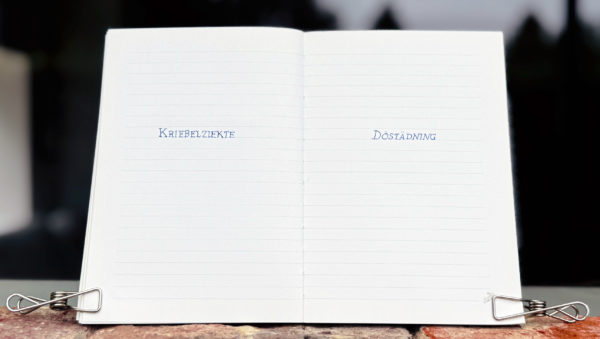 KRIEBELZIEKTE
DÖSTÄDNING